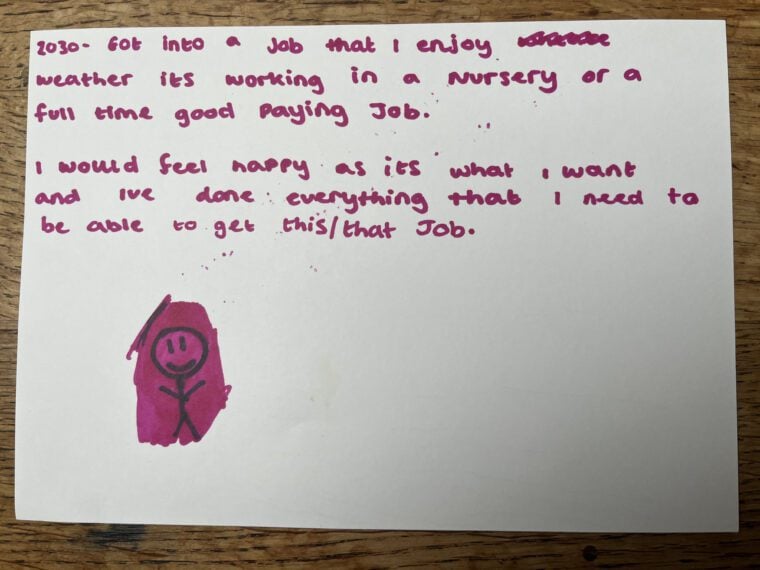 2030- Got into a Job that I enjoy
weather its working in a Nursery or a
full time good Paying Job.
I would feel happy as its what I want
and Ive done everything that I need to
be able to get this/that Job.